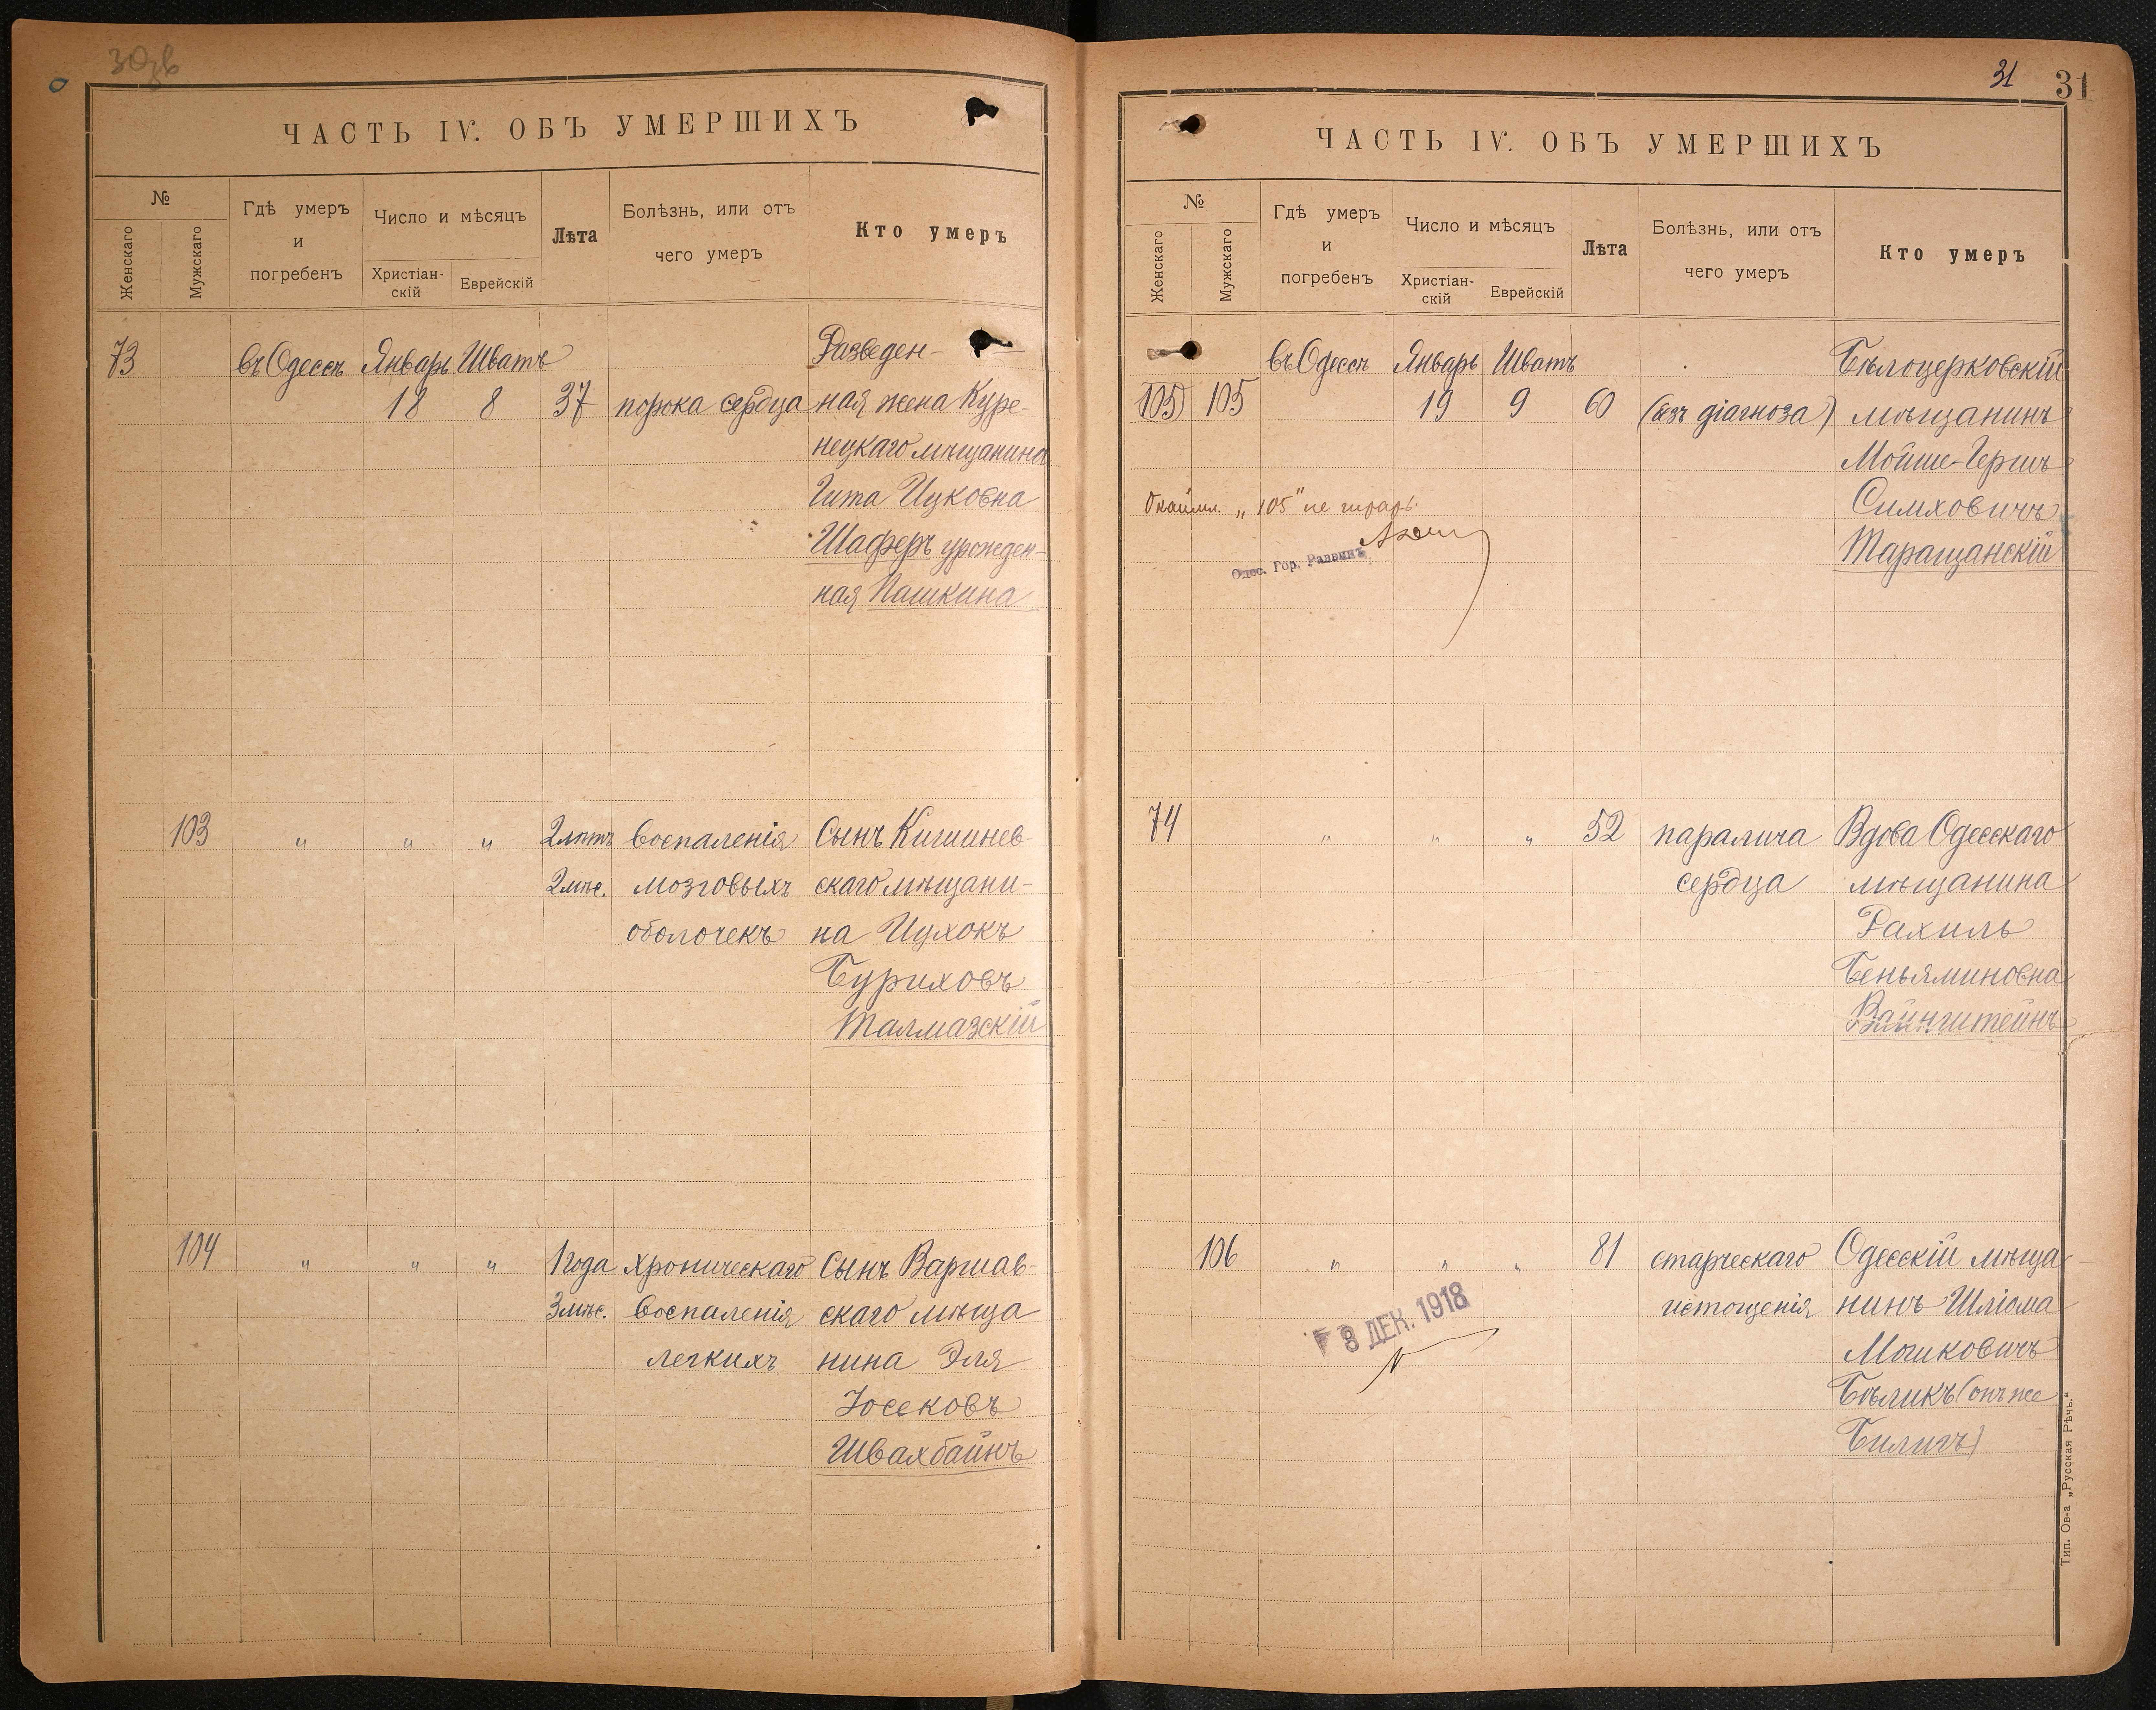 ЧАСТЬ IV. ОБЪ УМЕРШИХЪ
№
Женскаго
Мужскаго
Гдѣ умеръ
и
погребенъ
Число и мѣсяцъ
Христіан-
скій
Еврейскій
Лѣта
Болѣзнь, или отъ
чего умеръ
Кто умеръ
73 въ Одессѣ Январь Шватъ Разведен-
18 8 37 порока сердца ная жена Куре-
нецкаго мѣщанина
Гита Ицковна
Шаферъ урожден-
ная Пашкина
103 " " " 2 лѣтъ воспаленія Сынъ Кишинев-
2 мѣс. мозговыхъ скаго мѣщани-
оболочекъ на Ицхокъ
Буриховъ
Талмазскій
104 " " " 1 года хроническаго Сынъ Варшав-
3 мѣс. воспаленія скаго мѣща
легкихъ нина Эля
Іосековъ
Швахбайнъ
31 31
ЧАСТЬ IV. ОБЪ УМЕРШИХЪ
№
Женскаго
Мужскаго
Гдѣ умеръ
и
погребенъ
Число и мѣсяцъ
Христіан-
скій
Еврейскій
Лѣта
Болѣзнь, или отъ
чего умеръ
Кто умеръ
въ Одессѣ Январь Шватъ Бѣлоцерковскій
105 105 19 9 60 (безъ діагноза) мѣщанинъ
Мойше-Гершъ
Окаймл. „105" не читать. Симховичъ
Одес. Гор. Раввинъ Таращанскій
74 " " " 52 паралича Вдова Одесскаго
сердца мѣщанина
Рахиль
Беньяминовна
Вайнштейнъ
106 " " " 81 старческаго Одесскій мѣща
истощенія нинъ Шліома
8 ДЕК. 1918 Мошковичъ
Бѣликъ (онъ же
Билигъ)
Тип. Ов-а „Русская Рѣчь."